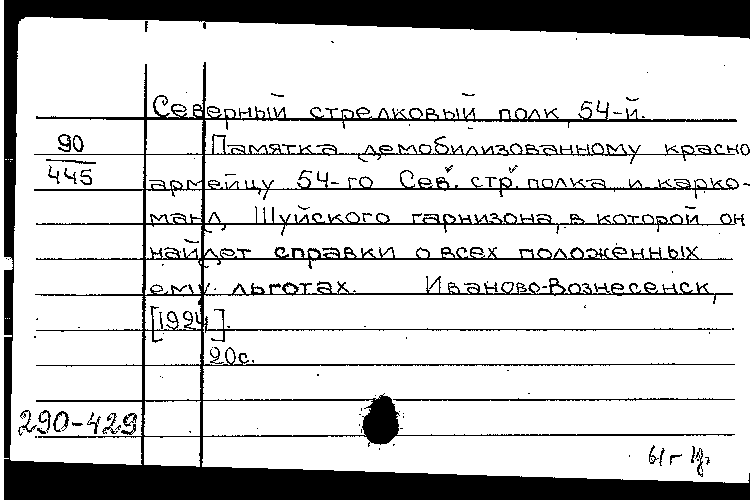 Северный стрелковый полк, 54-й.
90
445
Памятка демобилизованному красно
армейцу 54-го Сев. стр. полка и карко-
манд, Шуйского гарнизона, в которой он
найдет справки о всех положенных
ему льготах. Иваново-Вознесенск,
[1924].
20с.
290-429
61г